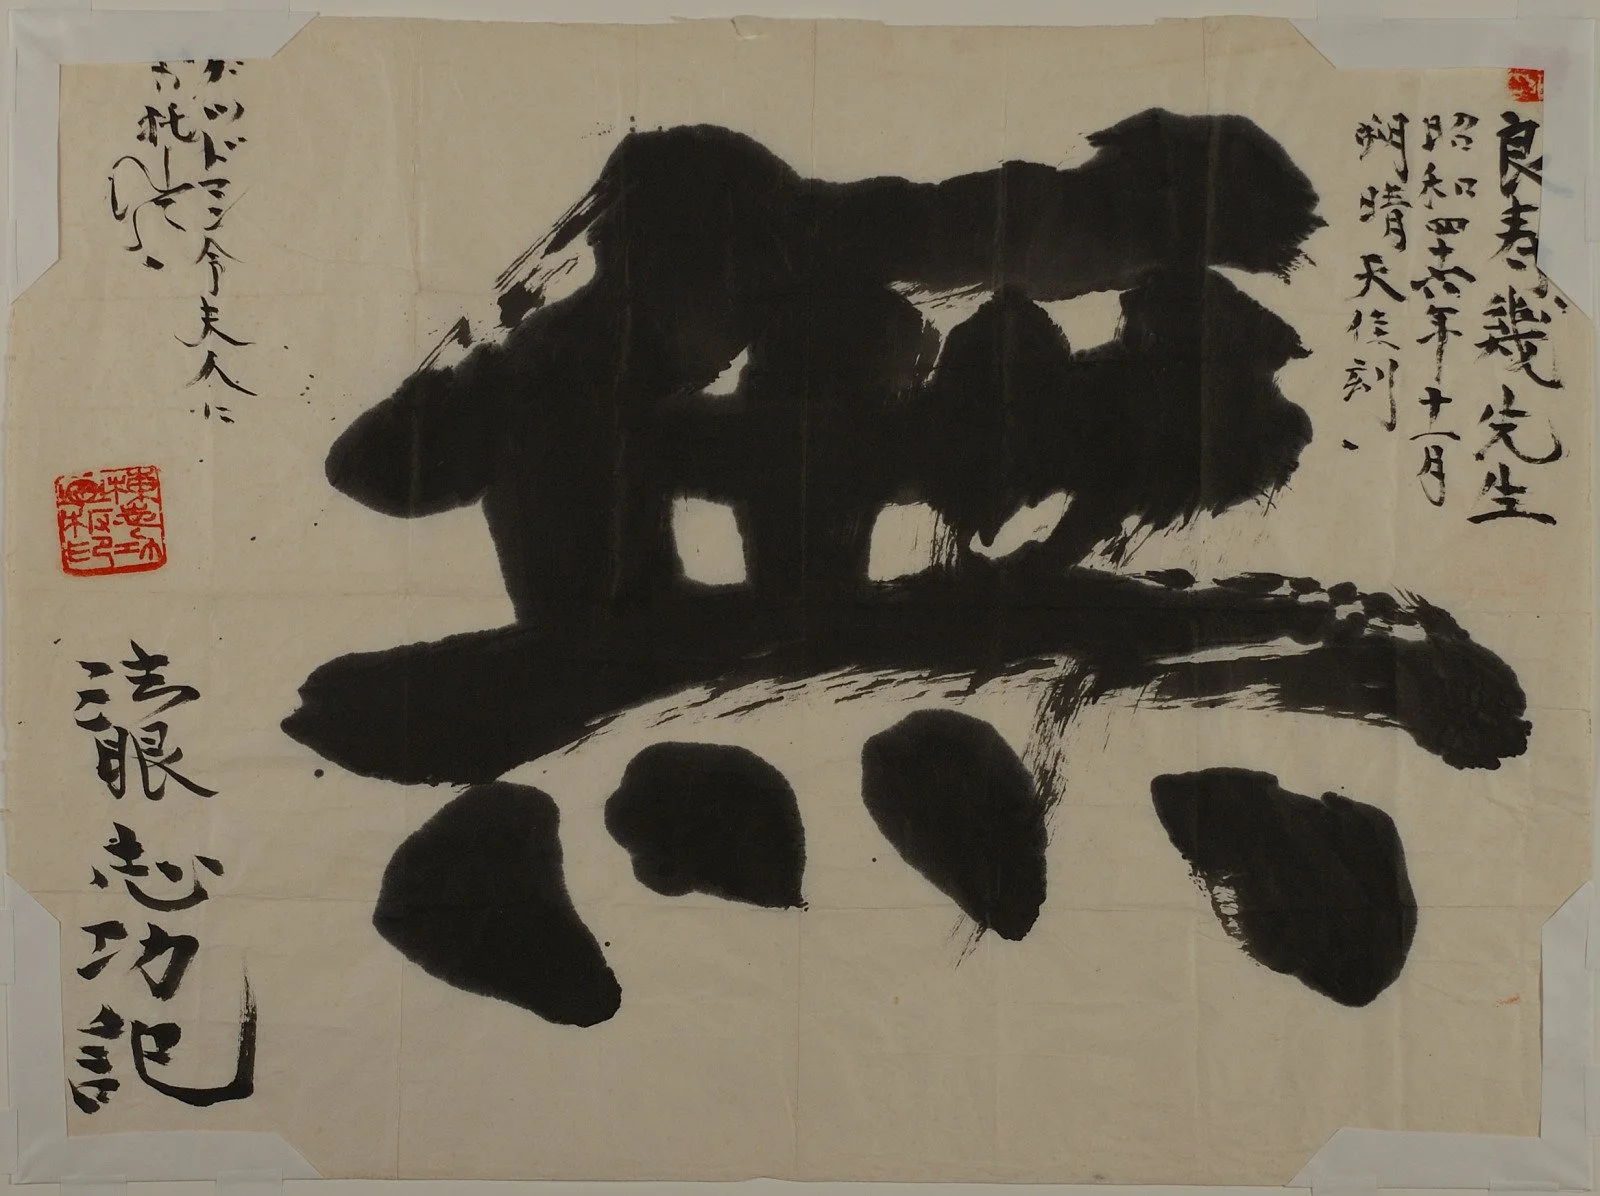 無
良 幾先生
昭和四十六年十一月
朔晴天佳刻、
グッドマン令夫人に
托
法眼志功記